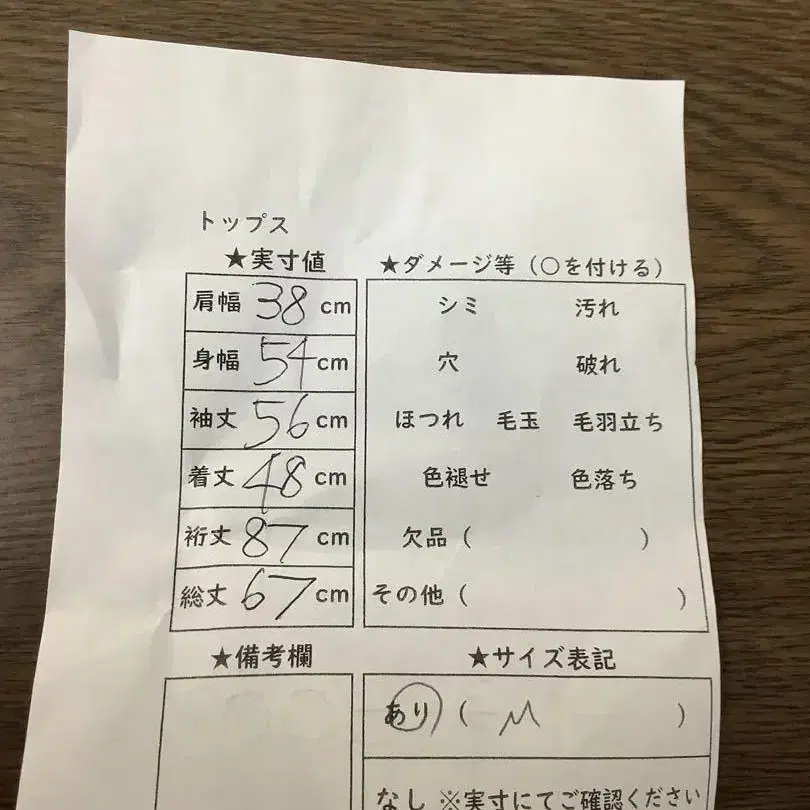 トップス
★実寸値
肩幅 38 cm
身幅 54 cm
袖丈 56 cm
着丈 48 cm
裄丈 87 cm
総丈 67 cm
★ダメージ等（○を付ける）
シミ 汚れ
穴 破れ
ほつれ 毛玉 毛羽立ち
色褪せ 色落ち
欠品（ ）
その他（ ）
★備考欄
★サイズ表記
あり（ M ）
なし ※実寸にてご確認ください